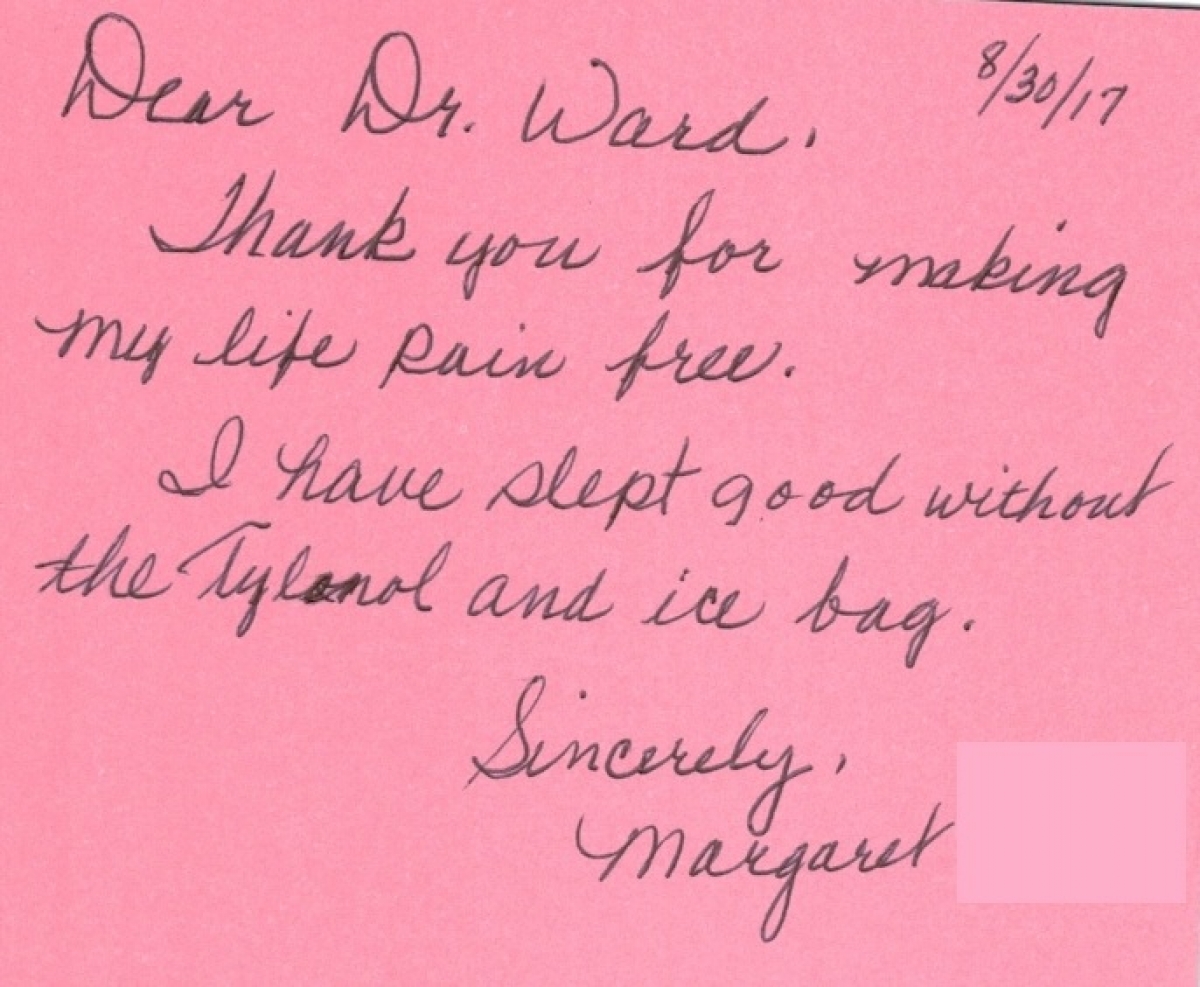 8/30/17
Dear Dr. Ward,
Thank you for making
my life pain free.
I have slept good without
the Tylonol and ice bag.
Sincerely,
Margaret